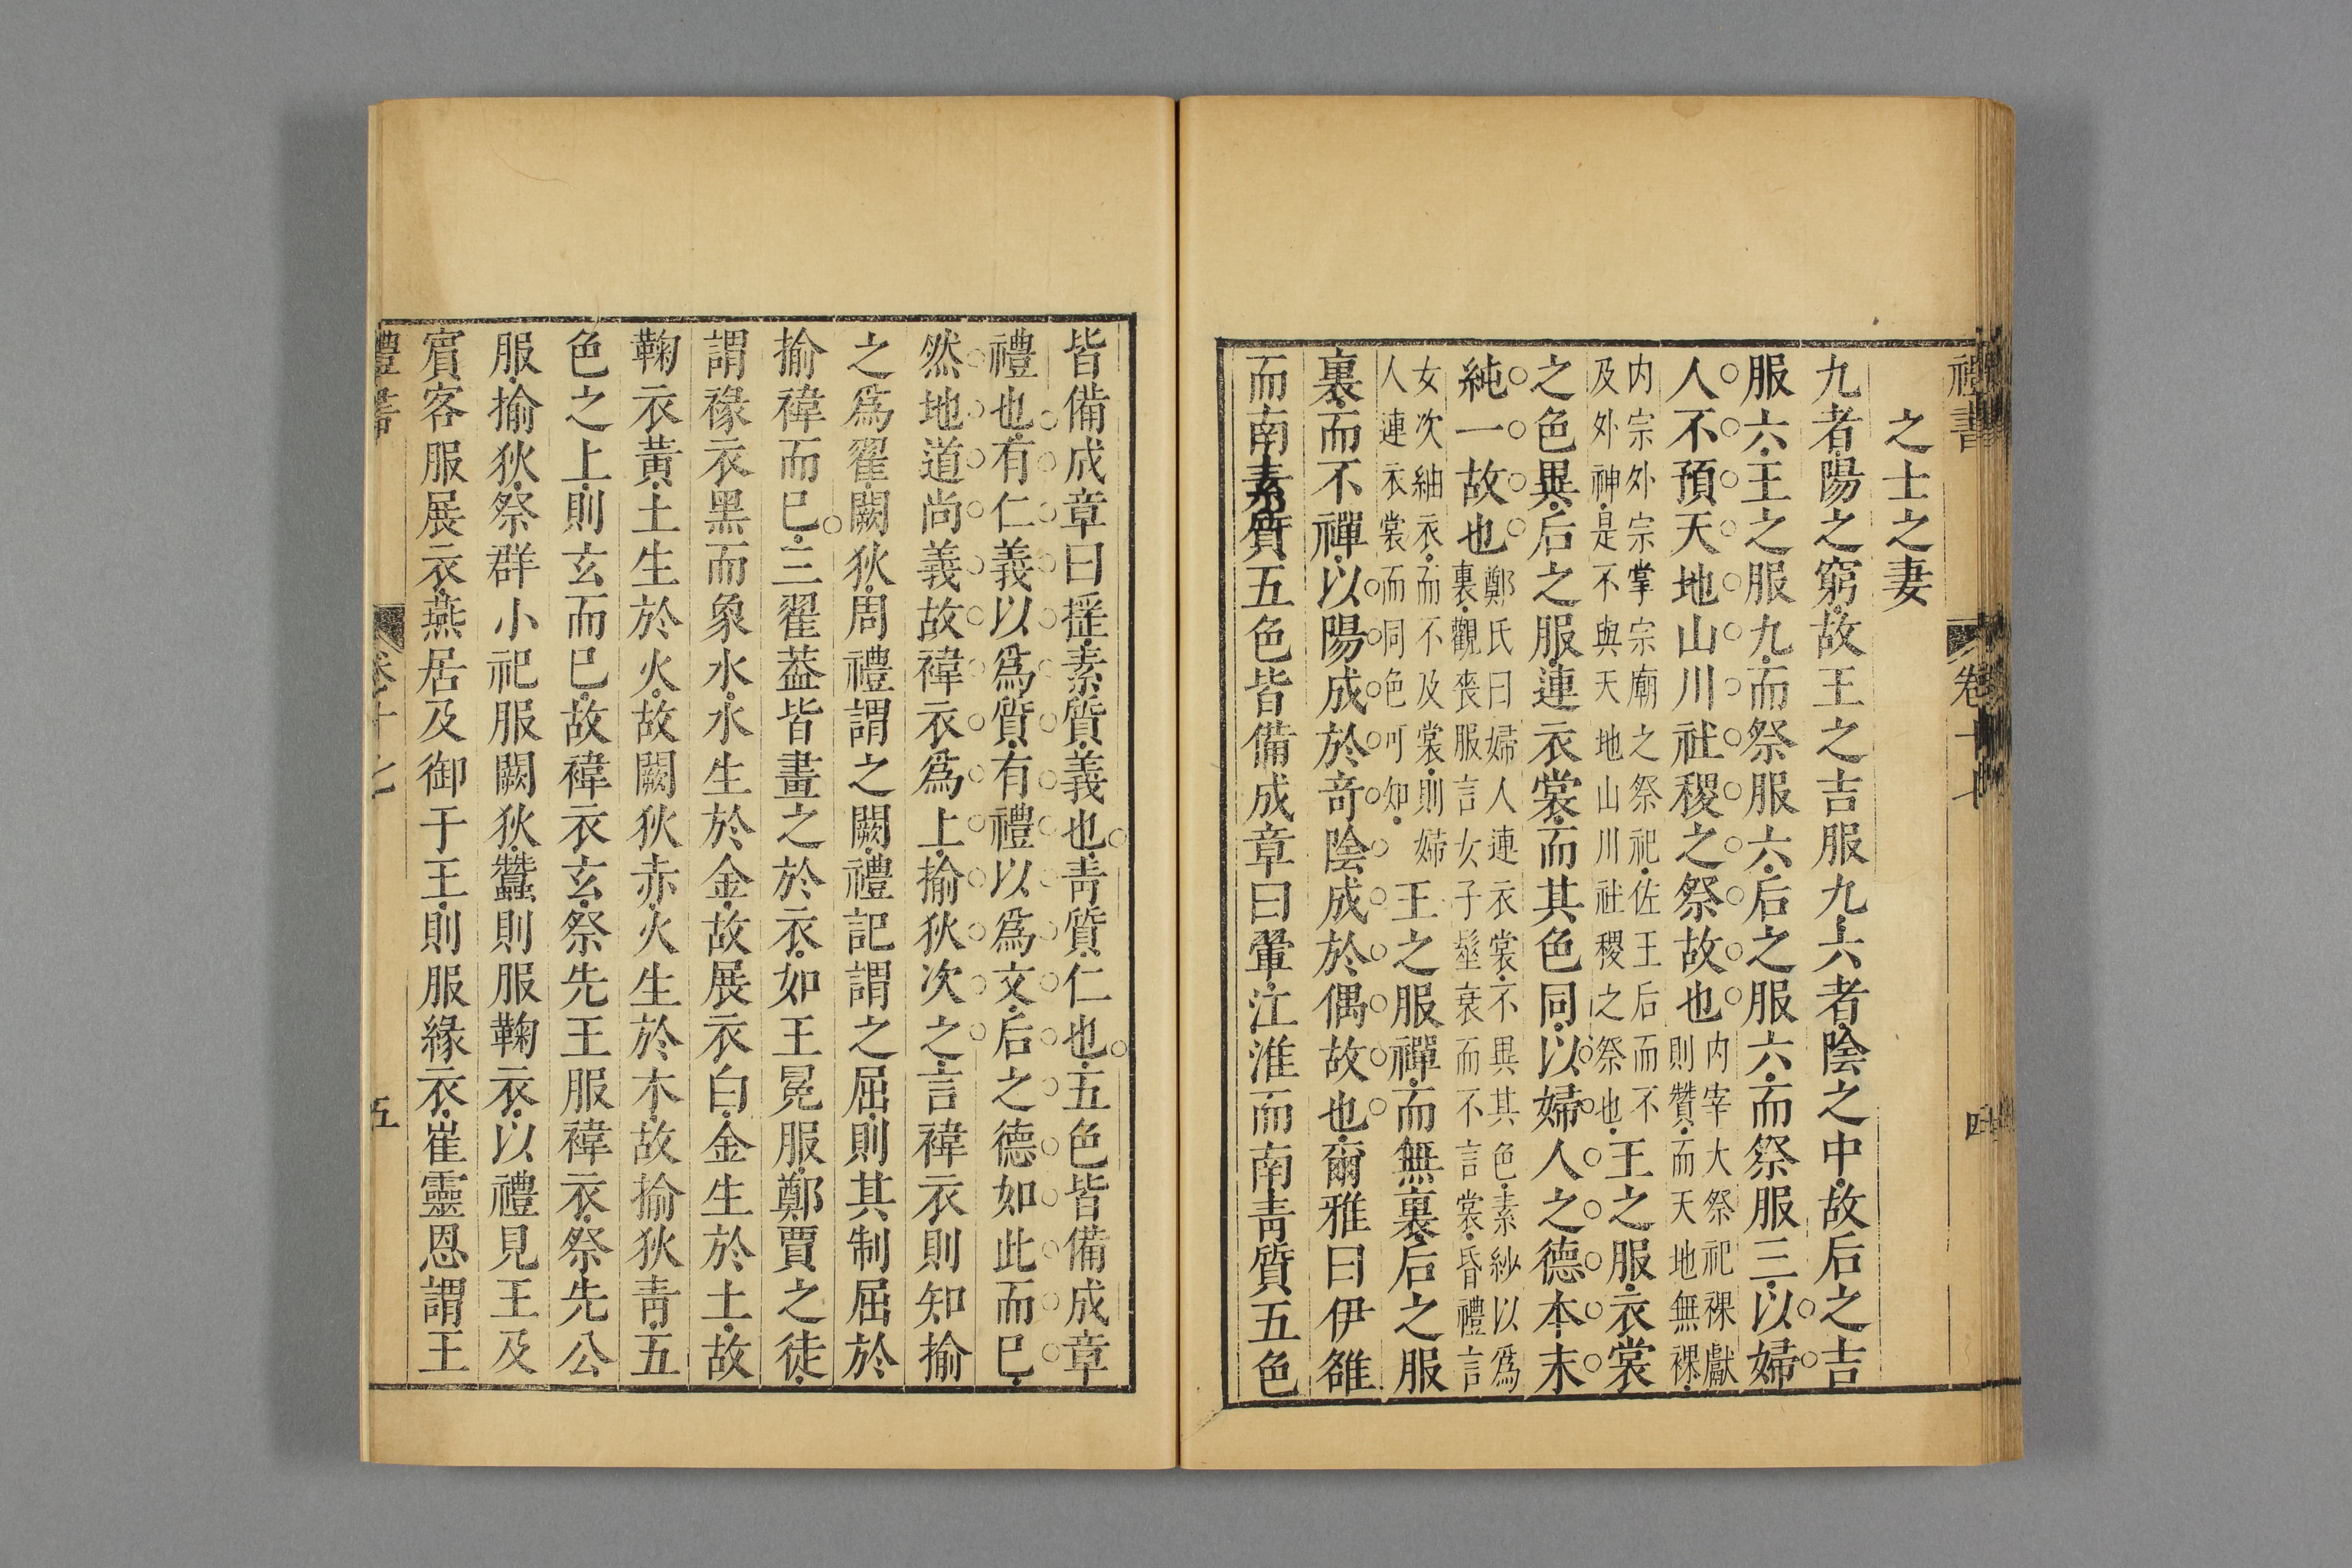 禮書 卷十七 四
之士之妻
九者陽之窮故王之吉服九六者陰之中故后之吉
服六王之服九而祭服六后之服六而祭服三以婦
人不預天地山川社稷之祭故也内宰大祭祀祼獻
則贊而天地無祼
内宗外宗掌宗廟之祭祀佐王后而不
及外神是不與天地山川社稷之祭也王之服衣裳
之色異后之服連衣裳而其色同以婦人之德本末
純一故也鄭氏曰婦人連衣裳不異其色素紗以爲
裏觀喪服言女子髽衰而不言裳昏禮言
女次紬衣而不及裳則婦
人連衣裳而同色可知王之服禪而無裏后之服
裏而不禪以陽成於奇陰成於偶故也爾雅曰伊雒
而南素質五色皆備成章曰翬江淮而南靑質五色
皆備成章曰搖素質義也靑質仁也五色皆備成章
禮也有仁義以爲質有禮以爲文后之德如此而巳
然地道尚義故褘衣爲上揄狄次之言褘衣則知揄
之爲翟闕狄周禮謂之闕禮記謂之屈則其制屈於
揄褘而巳三翟葢皆畫之於衣如王冕服鄭賈之徒
謂褖衣黑而象水水生於金故展衣白金生於土故
鞠衣黃土生於火故闕狄赤火生於木故揄狄靑五
色之上則玄而巳故褘衣玄祭先王服褘衣祭先公
服揄狄祭群小祀服闕狄蠶則服鞠衣以禮見王及
賓客服展衣燕居及御于王則服緣衣崔靈恩謂王
禮書 卷十七 五